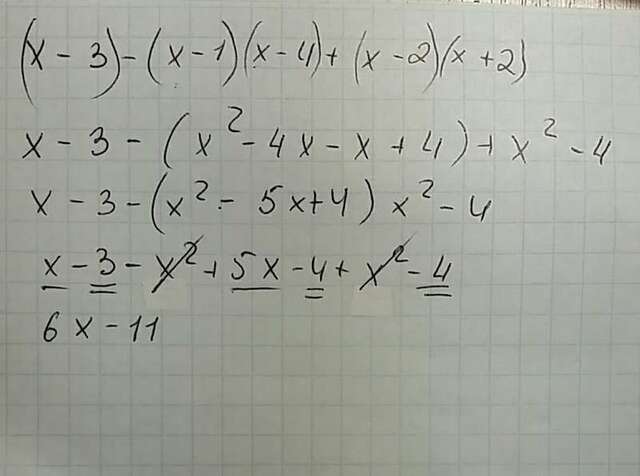 (x - 3) - (x - 1)(x - 4) + (x - 2)(x + 2)
x - 3 - (x² - 4x - x + 4) + x² - 4
x - 3 - (x² - 5x + 4) x² - 4
x - 3 - x² + 5x - 4 + x² - 4
6x - 11